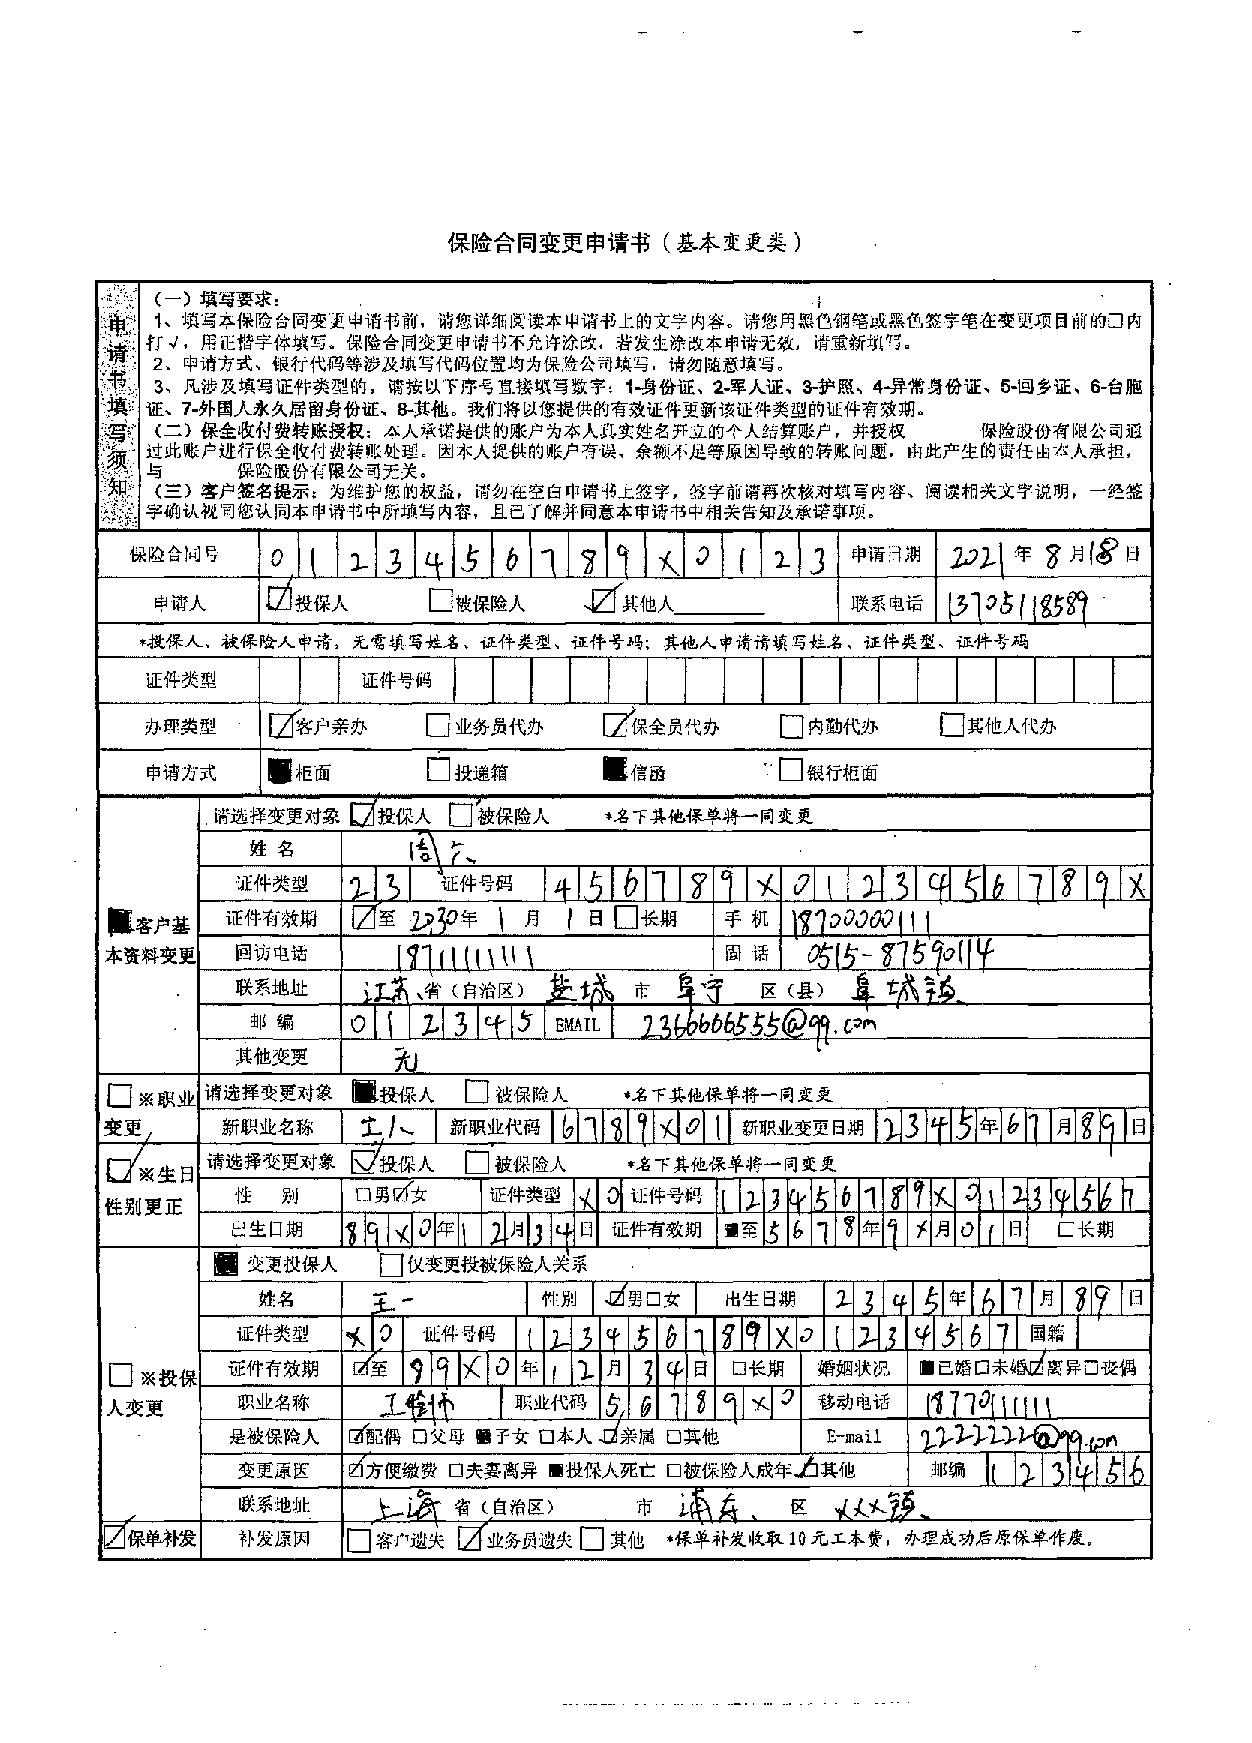 保险合同变更申请书（基本变更类）
申请书填写须知
（一）填写要求：
1、填写本保险合同变更申请书前，请您详细阅读本申请书上的文字内容。请您用黑色钢笔或黑色签字笔在变更项目前的□内
打√，用正楷字体填写。保险合同变更申请书不允许涂改，若发生涂改本申请无效，请重新填写。
2、申请方式、银行代码等涉及填写代码位置均为保险公司填写，请勿随意填写。
3、凡涉及填写证件类型的，请按以下序号直接填写数字：1-身份证、2-军人证、3-护照、4-异常身份证、5-回乡证、6-台胞
证、7-外国人永久居留身份证、8-其他。我们将以您提供的有效证件更新该证件类型的证件有效期。
（二）保全收付费转账授权：本人承诺提供的账户为本人真实姓名开立的个人结算账户，并授权 保险股份有限公司通
过此账户进行保全收付费转账处理。因本人提供的账户有误、余额不足等原因导致的转账问题，由此产生的责任由本人承担，
与 保险股份有限公司无关。
（三）客户签名提示：为维护您的权益，请勿在空白申请书上签字，签字前请再次核对填写内容、阅读相关文字说明，一经签
字确认视同您认同本申请书中所填写内容，且已了解并同意本申请书中相关告知及承诺事项。
保险合同号 0123456789X0123 申请日期 2021年8月18日
申请人 ☑投保人 □被保险人 ☑其他人 联系电话 13705118589
*投保人、被保险人申请，无需填写姓名、证件类型、证件号码；其他人申请请填写姓名、证件类型、证件号码
证件类型 证件号码
办理类型 ☑客户亲办 □业务员代办 ☑保全员代办 □内勤代办 □其他人代办
申请方式 ■柜面 □投递箱 ■信函 □银行柜面
■客户基本资料变更
请选择变更对象 ☑投保人 □被保险人 *名下其他保单将一同变更
姓名 周六
证件类型 23 证件号码 456789X0123456789X
证件有效期 ☑至 2030年1月1日 □长期 手机 18700000111
回访电话 18711111111 固话 0515-87590114
联系地址 江苏省（自治区）盐城市 阜宁区（县）阜城镇
邮编 012345 EMAIL 2366666555@qq.com
其他变更 无
□※职业变更
请选择变更对象 ■投保人 □被保险人 *名下其他保单将一同变更
新职业名称 工人 新职业代码 6789X01 新职业变更日期 2345年67月89日
☑※生日性别更正
请选择变更对象 ☑投保人 □被保险人 *名下其他保单将一同变更
性别 □男☑女 证件类型 X0 证件号码 123456789X01234567
出生日期 89X0年12月34日 证件有效期 ■至5678年9X月01日 □长期
□※投保人变更
■变更投保人 □仅变更投被保险人关系
姓名 王一 性别 ☑男□女 出生日期 2345年67月89日
证件类型 X0 证件号码 123456789X01234567 国籍
证件有效期 ☑至 89X0年12月34日 □长期 婚姻状况 ■已婚□未婚☑离异□丧偶
职业名称 工程师 职业代码 56789X0 移动电话 18770111111
是被保险人 ☑配偶 □父母 ■子女 □本人 ☑亲属 □其他 E-mail 2222222@qq.com
变更原因 ☑方便缴费 □夫妻离异 ■投保人死亡 □被保险人成年 ☑其他 邮编 123456
联系地址 上海省（自治区） 市 浦东区 XXX镇
☑保单补发 补发原因 □客户遗失 ☑业务员遗失 □其他 *保单补发收取10元工本费，办理成功后原保单作废。